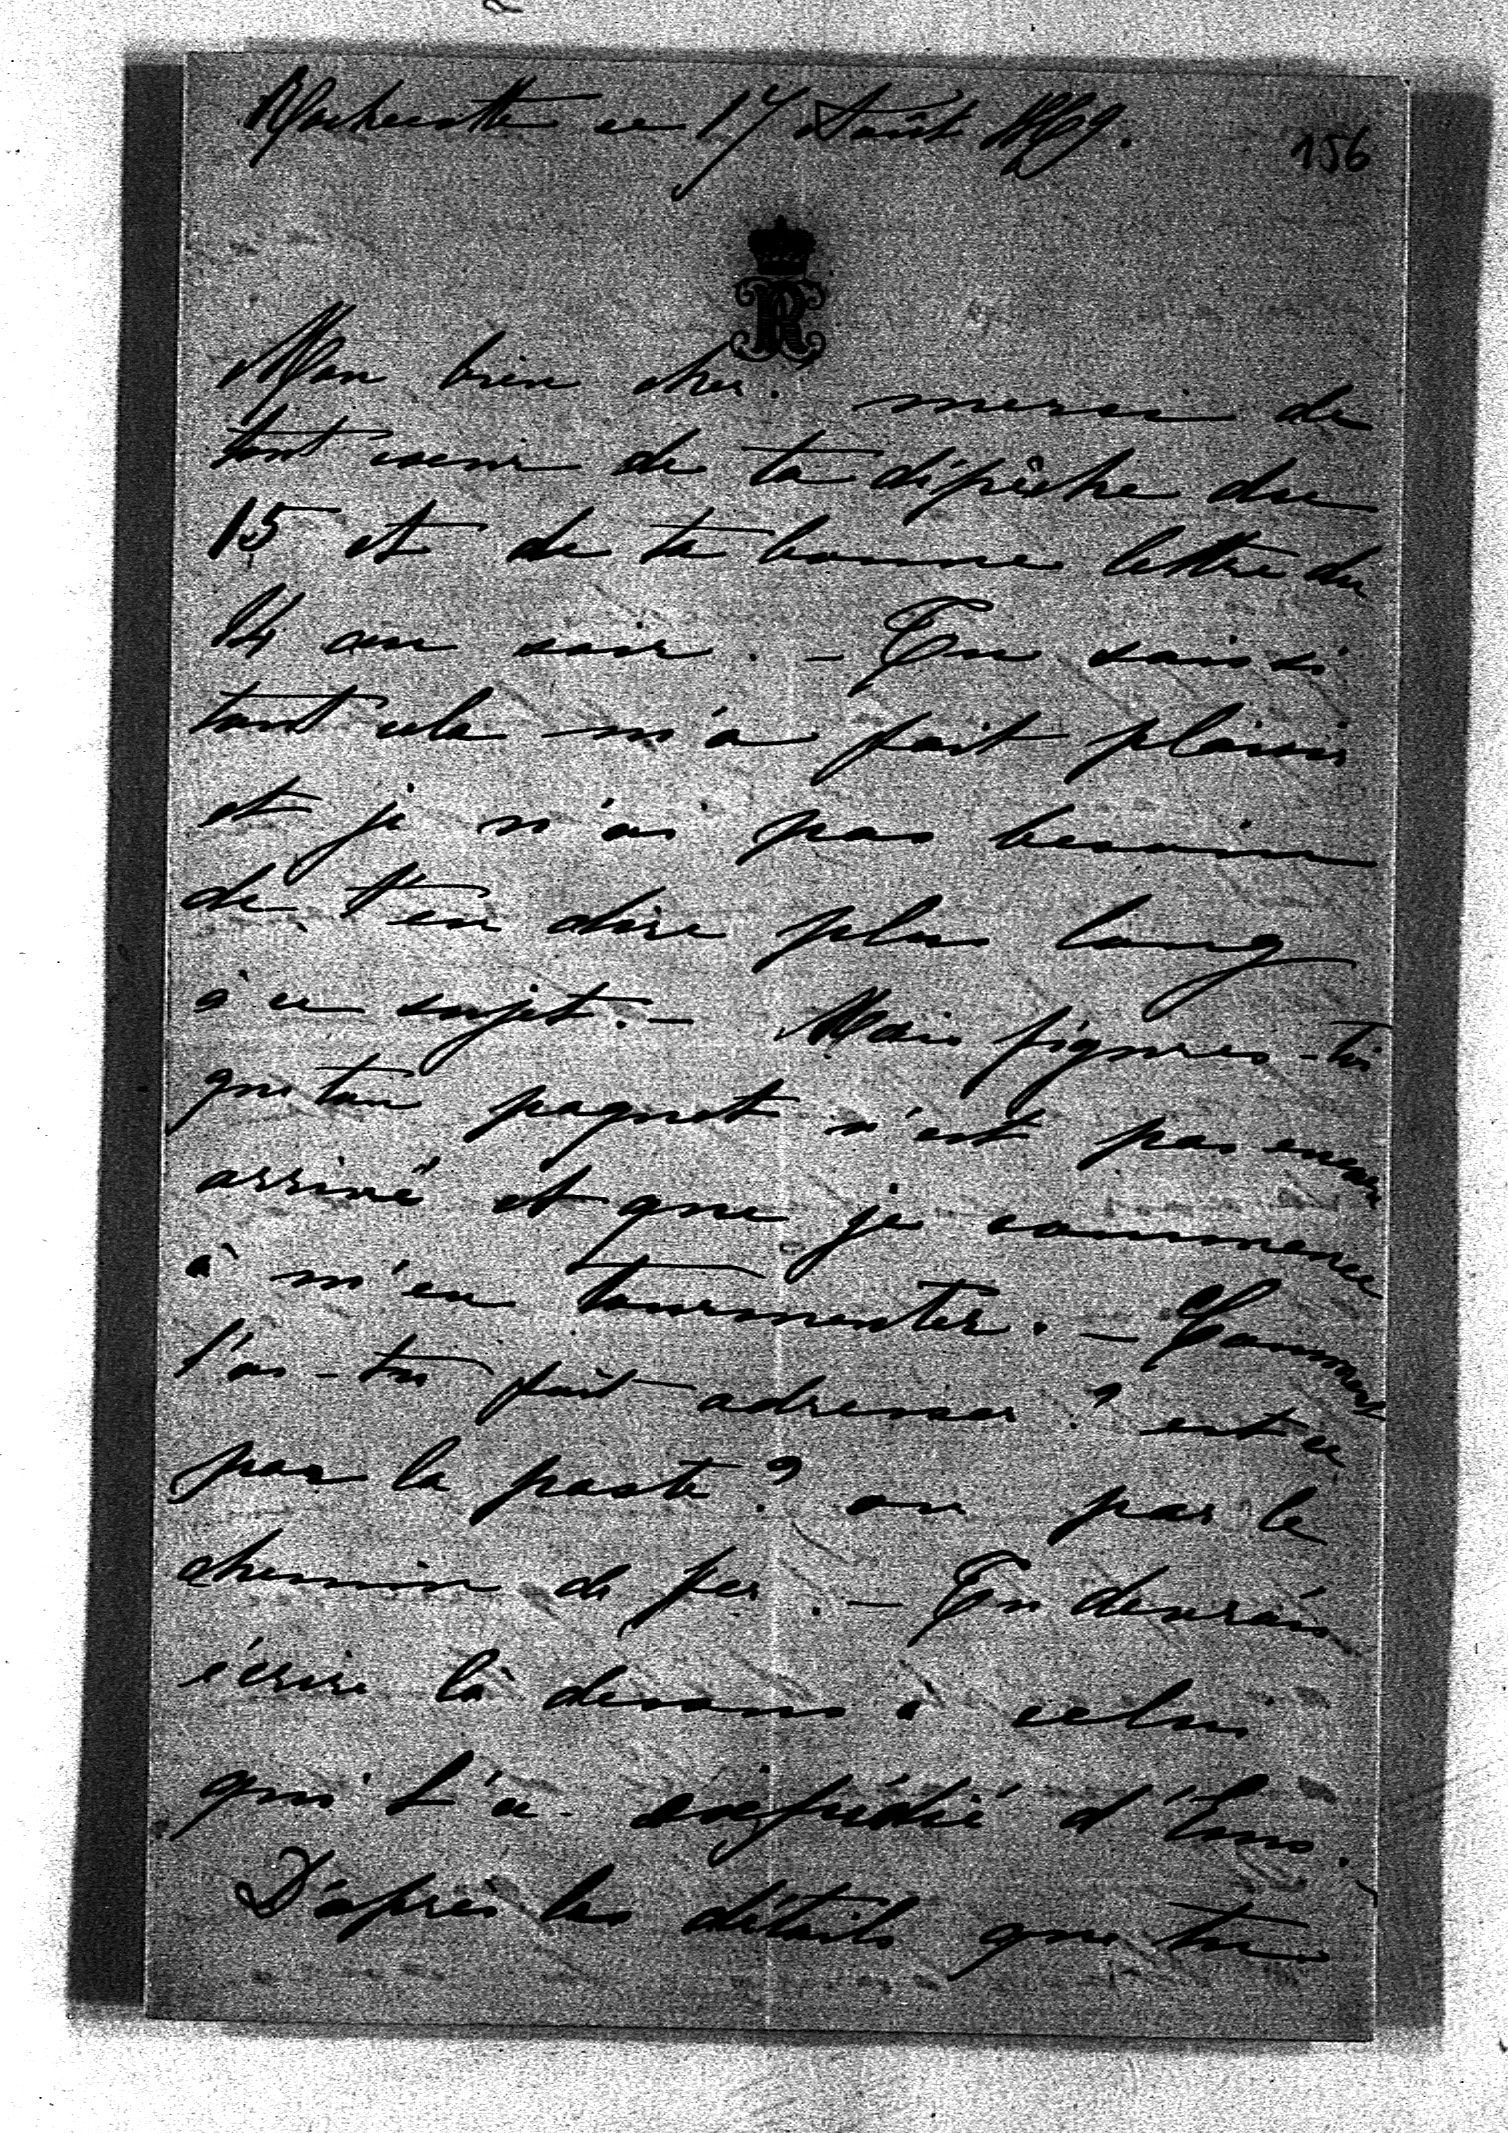 ce 17 Août 1869.
156
Mon bien cher. merci de
tout coeur de ta dépêche du
15 et de ta bonne lettre du
14 au soir. - Tu sais si
tout cela m'a fait plaisir
et je n'ai pas besoin
de t'en dire plus long
à ce sujet. - Mais figures-toi
que ton paquet n'est pas encore
arrivé et que je commence
à m'en tourmenter. - Comment
l'as-tu fait adresser? est ce
par la poste? ou par le
chemin de fer. - Tu devrais
écrire là dessus à celui
qui l'a expédié d'Ems.
D'après les détails que tu